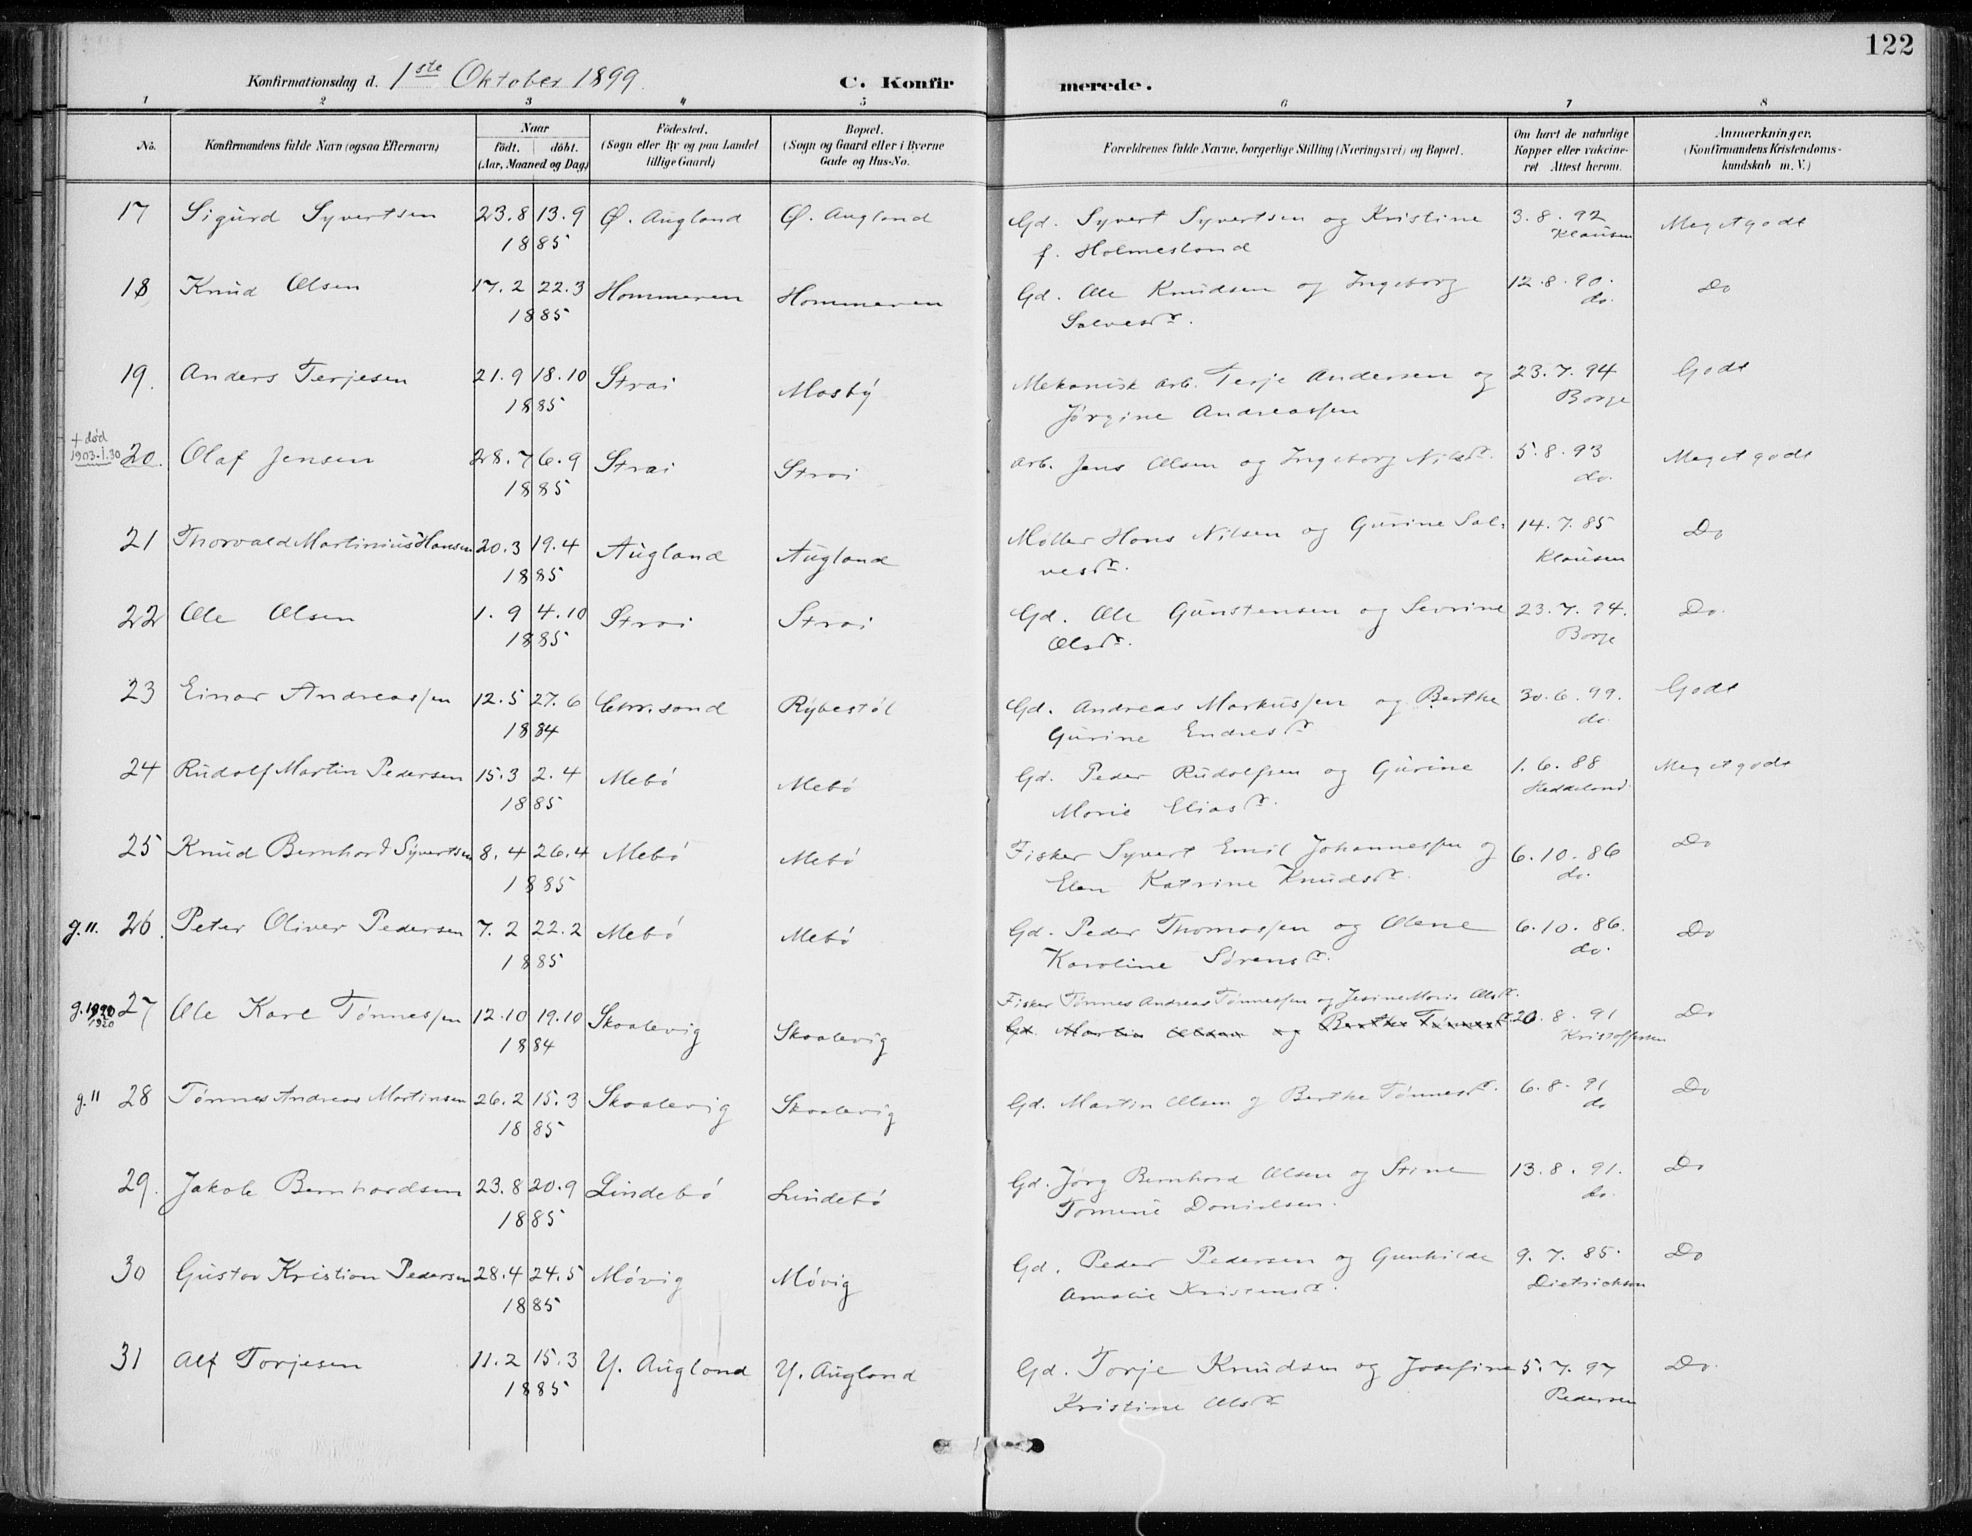 122
Konfirmationsdag d. 1ste Oktober 1899. C. Konfirmerede.
1 2 3 4 5 6 7 8
No. Konfirmandens fulde Navn (ogsaa Efternavn) Naar födt. döbt. (Aar, Maaned og Dag) Födested. (Sogn eller By og paa Landet tillige Gaard) Bopæl. (Sogn og Gaard eller i Byerne Gade og Hus-No. Forældrenes fulde Navne, borgerlige Stilling (Næringsvei) og Bopæl. Om havt de naturlige Kopper eller vakcineret Attest herom. Anmærkninger. (Konfirmandens Kristendomskundskab m. V.)
17 Sigurd Syvertsen 23.8 13.9 Ø. Augland Ø. Augland Gd. Syvert Syvertsen og Kristine 3.8.92 Meget godt
1885 f. Holmesland Klausen
18 Knud Olsen 17.2 22.3 Hommeren Hommeren Gd. Ole Knudsen og Ingeborg 12.8.90. Do
1885 Salvesdr. do.
19. Anders Terjesen 21.9 18.10 Strai Mosby Mekanisk arb. Terje Andersen og 23.7.94 Godt
1885 Jørgine Andreassen Borge
+ død
1903.1.30 20. Olaf Jensen 28.7 6.9 Strai Strai Arb. Jens Olsen og Ingeborg Nilsdr. 5.8.93 Meget godt
1885 do.
21 Thorvald Martinius Hansen 20.3 19.4 Augland Augland Møller Hans Nilsen og Gurine Sal- 14.7.85 Do
1885 vesdr. Klausen
22 Ole Olsen 1.9 4.10 Strai Strai Gd. Ole Gunstensen og Sevrine 23.7.94. Do.
1885 Olsdr. Borge
23 Einar Andreassen 12.5 27.6 Chr.sand Rybestøl Gd. Andreas Markussen og Berthe 30.6.99. Godt
1884 Gurine Endresdr. do.
24 Rudolf Martin Pedersen 15.3 2.4 Mebø Mebø Gd. Peder Rudolfsen og Gurine 1.6.88 Meget godt
1885 Marie Eliasdr. Heddeland.
25 Knud Bernhard Syvertsen 8.4 26.4 Mebø Mebø Fisker Syvert Emil Johannessen og 6.10.86 Do
1885 Elen Katrine Knudsdr. do.
g.11. 26. Peter Oliver Pedersen 7.2 22.2 Mebø Mebø Gd. Peder Thomassen og Olene 6.10.86. Do
1885 Karoline Sørensdr. do.
Fisker Tønnes Andreas Tønnessen og Jesine Marie Olsdr.
g.1920 27 Ole Karl Tønnessen 12.10 19.10 Skaalevig Skaalevig Gd. Martin Olsen og Berthe Tønnesdr. 20.8.91 Do
1920 1884 Kristoffersen
g.11 28 Tønnes Andreas Martinsen 26.2 15.3 Skaalevig Skaalevig Gd. Martin Olsen og Berthe Tønnesdr. 6.8.91 Do
1885 do
29. Jakob Bernhardsen 23.8 20.9 Lindebø Lindebø Gd. Jørg Bernhard Olsen og Stine 13.8.91. Do
1885 Tomine Danielsen. do.
30 Gustav Kristian Pedersen 28.4 24.5 Møvig Møvig Gd. Peder Pedersen og Gunhilde 9.7.85. Do
1885 Amalie Kristensdr. Dietrichson
31 Alf Torjesen 11.2 15.3 Y. Augland Y. Augland Gd. Torje Knudsen og Josefine 5.7.97 Do.
1885 Kristine Olsdr Pedersen